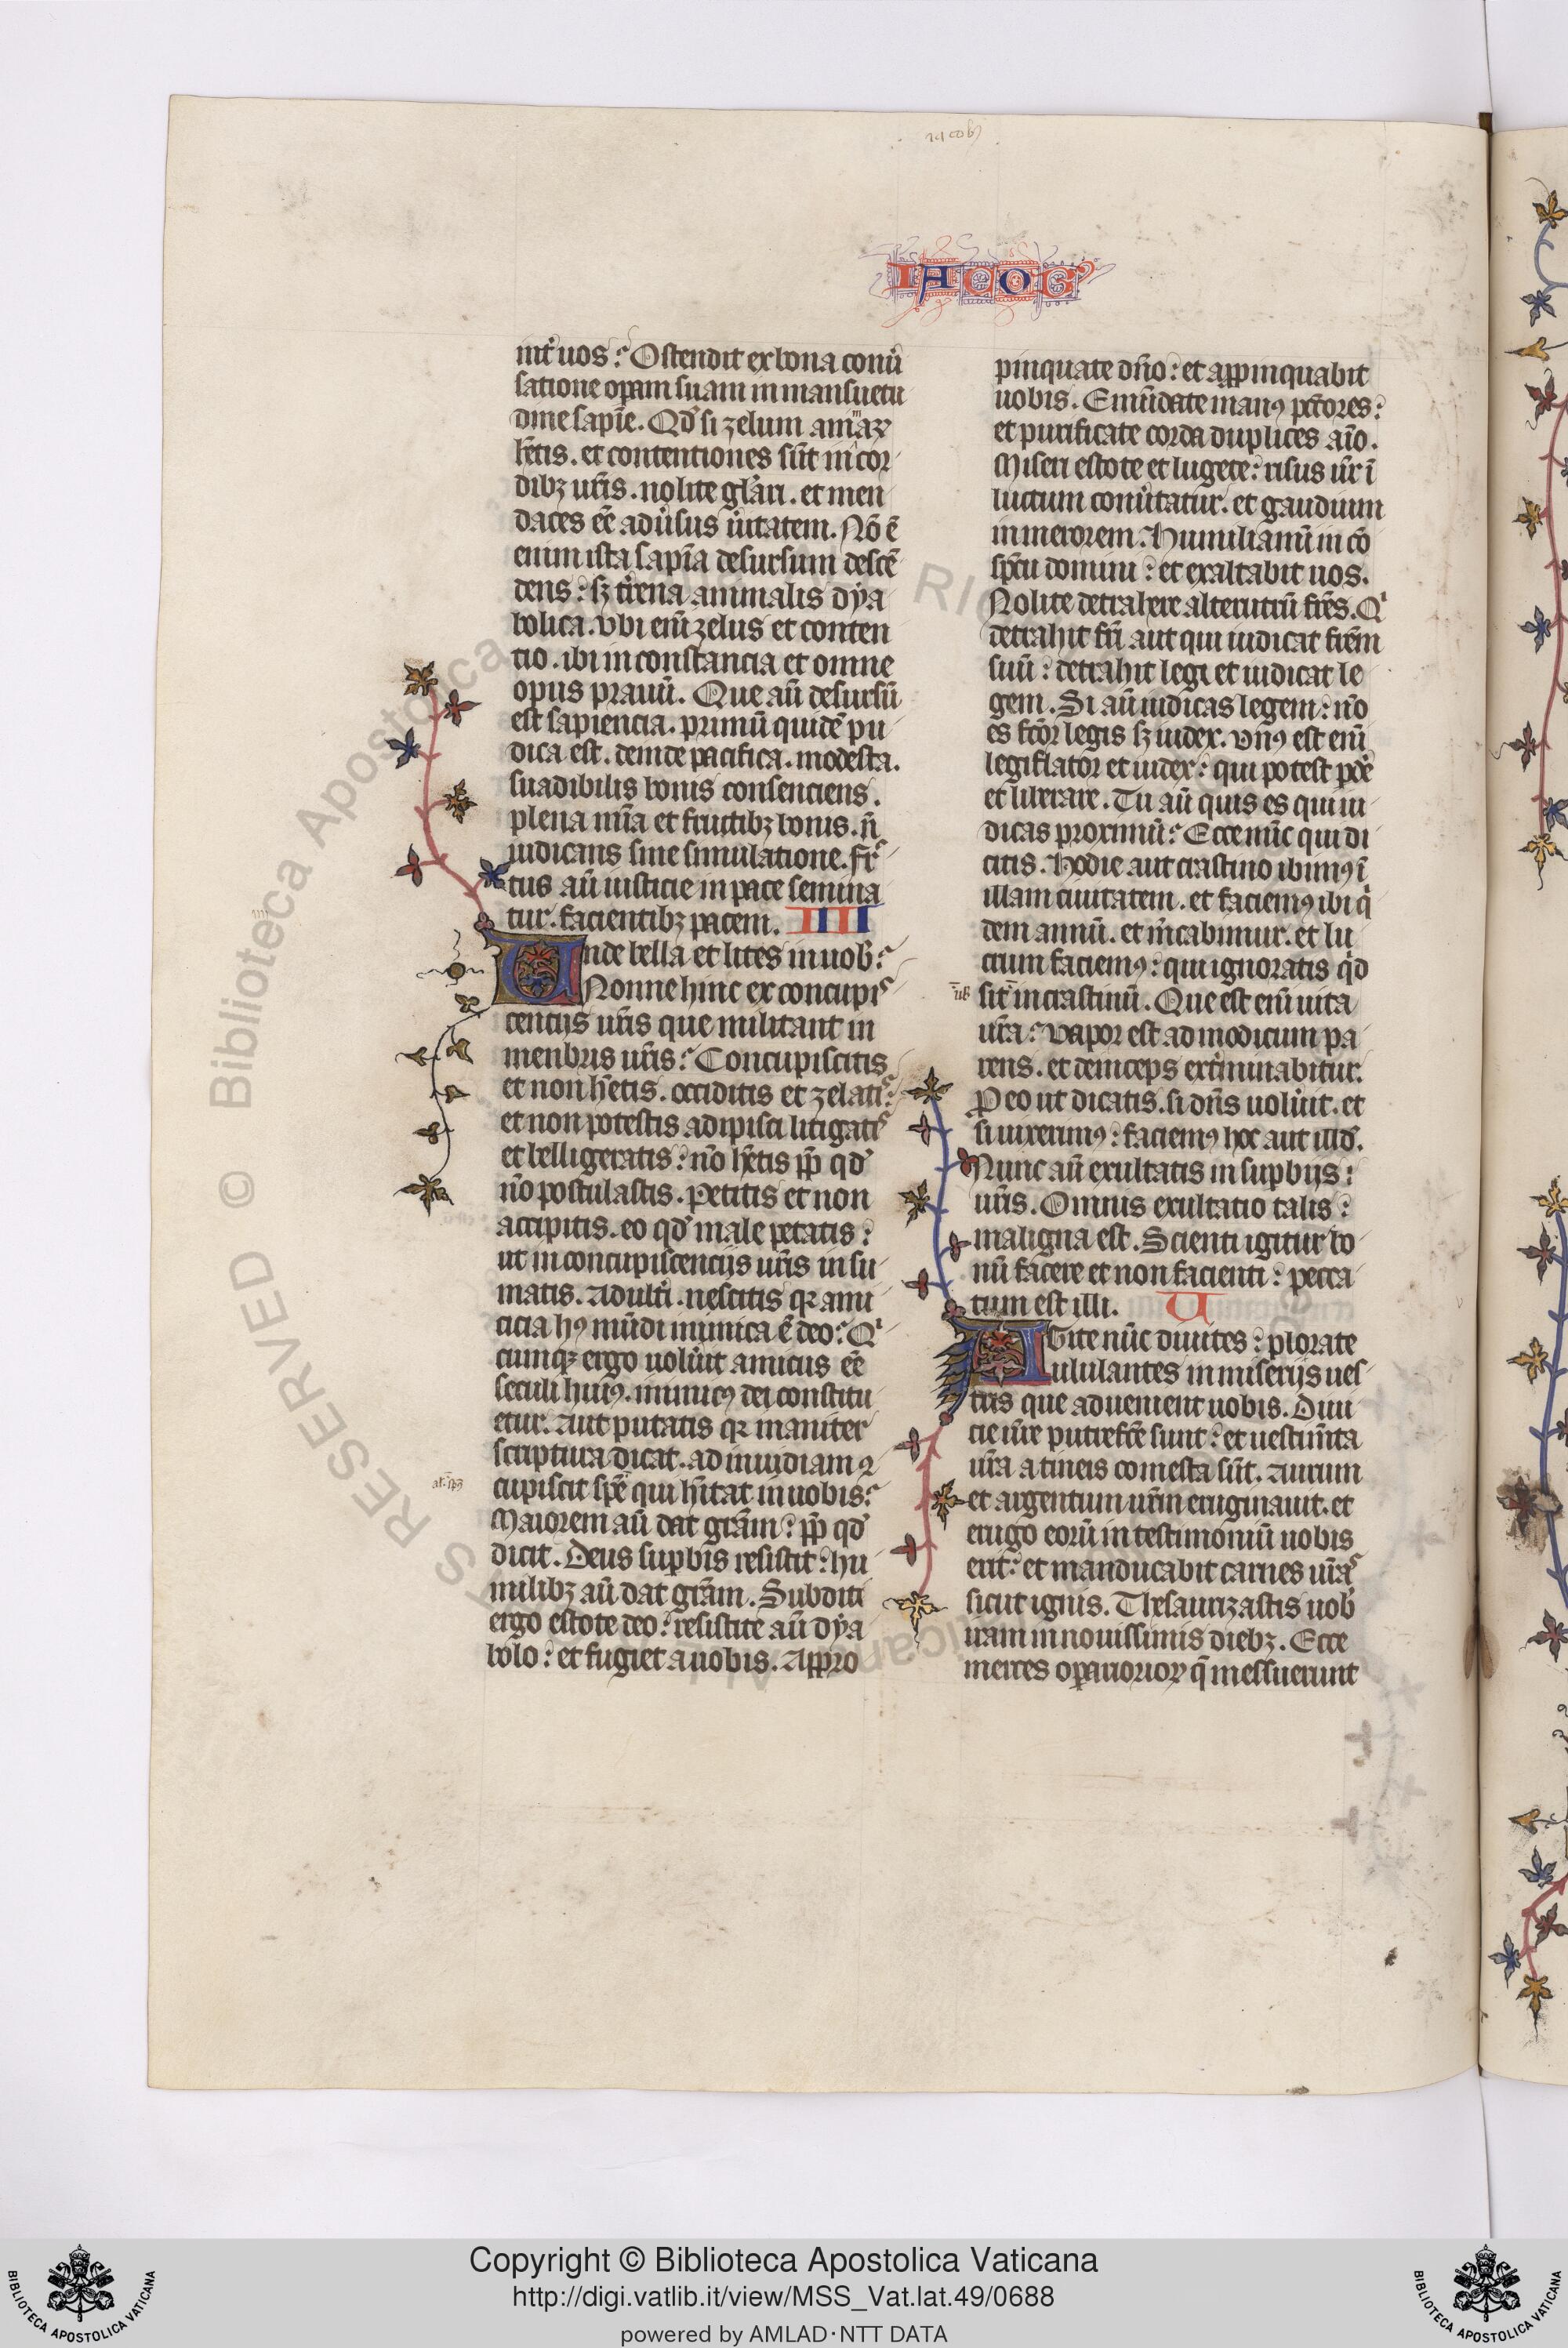 iacobus
IACOB
int͛ uos؟ Ostendit ex bona conu͛
satione oꝑam suam in mansuetu
dine sapīe. Qd̓ si zelum amaꝝ
hētis. et contentiones sūt in cor
dibꝫ ur̄is. nolite glāri. et men
daces eē adu͛sus u͛itatem. Nō ē
enim ista sapīa desursum descē
dens: sꝫ t͛rena animalis dẏa
bolica. Vbi enī zelus et conten
tio. ibi inconstancia et omne
opus prauū. Que aū desursū
est sapiencia. primū quidē pu
dica est. deinde pacifica. modesta.
suadibilis bonis consenciens.
plena mīa et fructibꝫ bonis. n̄
iudicans sine simulatione. Frͨ
tus aū iusticie in pace semina
tur. facientibꝫ pacem. IIII
Unde bella et lites in uob̓؟
Nonne hinc ex concupiˢ
cencijs ur̄is que militant in
menbris ur̄is؟ Concupiscitis
et non hētis. occiditis et zelatiˢ:
et non potestis adipisci litigatiˢ
et belligeratis: nō hētis ꝓp̄ qd̓
nō postulastis. Petitis et non
accipitis. eo qd̓ male petatis:
ut in concupiscencijs ur̄is insu
matis. Adult͛i. nescitis qꝛ ami
cicia hꝰ mūdi inimica ē deo؟ Qͥ
cumqꝫ ergo uolu͛it amicus eē
seculi huiꝰ. inimicꝰ dei constitu
etur. Aut putatis qꝛ inaniter
scriptura dicat. ad inuidiam ꝯ
al. sps
cupiscit spē qui hītat in uobis؟
Maiorem aū dat grām: ꝓp̄ qd̓
dicit. Deus suꝑbis resistit: hu
milibꝫ aū dat grām. Subditi
ergo estote deo: resistite aū dẏa
bolo: et fugiet a uobis. Aꝓpro
pinquate dn̄o: et aꝓpinquabit
uobis. Emūdate manꝰ pc̄tores:
et purificate corda duplices aīo.
Miseri estote et lugete: risus ur̄ ī
luctum conu͛tatur. et gaudium
in merorem. Humiliaminī in cō
spc̄tu domini: et exaltabit uos.
Nolite detrahere alterutrū frēs. Qͥ
detrahit frī aut qui iudicat frēm
suū: detrahit legi et iudicat le
gem. Si aū iudicas legem: nō
es fc̄or legis sꝫ iudex. Vnꝰ est enī
legislator et iudex: qui potest ꝑdē
et liberare. Tu aū quis es qui iu
dicas proximū؟ Ecce nūc qui di
citis. Hodie aut crastino ibimꝰ ī
illam ciuitatem. et faciemꝰ ibi qͥ
dem annū. et m͛cabimur. et lu
crum faciemꝰ: qui ignoratis qͥd
sit in crastinū. Que est enī uita
ur̄a؟ Vapor est ad modicum pa
rens. et deinceps ext͛minabitur.
Pro eo ut dicatis. si dn̄s uolu͛it. et
si uixerimꝰ: faciemꝰ hoc aut illd̓.
Nunc aū exultatis in suꝑbijs:
ur̄is. Omnis exultatio talis:
maligna est. Scienti igitur bo
nū facere et non facienti: pecca
tum est illi. U
Agite nūc diuites: plorate
ululantes in miserijs ues
tris que aduenient uobis. Diui
cie ur̄e putrefc̄e sunt: et uestimīta
ur̄a a tineis comesta sūt. Aurum
et argentum ur̄m eruginauit. et
erugo eorū in testimoniū uobis
erit: et manducabit carnes ur̄aˢ
sicut ignis. Thesaurizastis uob̓
iram in nouissimis diebꝫ. Ecce
merces oꝑariorioꝝ q̄ messuerunt
© Biblioteca Apostolica Vaticana ALL RIGHTS RESERVED
Copyright © Biblioteca Apostolica Vaticana
http://digi.vatlib.it/view/MSS_Vat.lat.49/0688
powered by AMLAD·NTT DATA
BIBLIOTECA APOSTOLICA VATICANA
BIBLIOTECA APOSTOLICA VATICANA